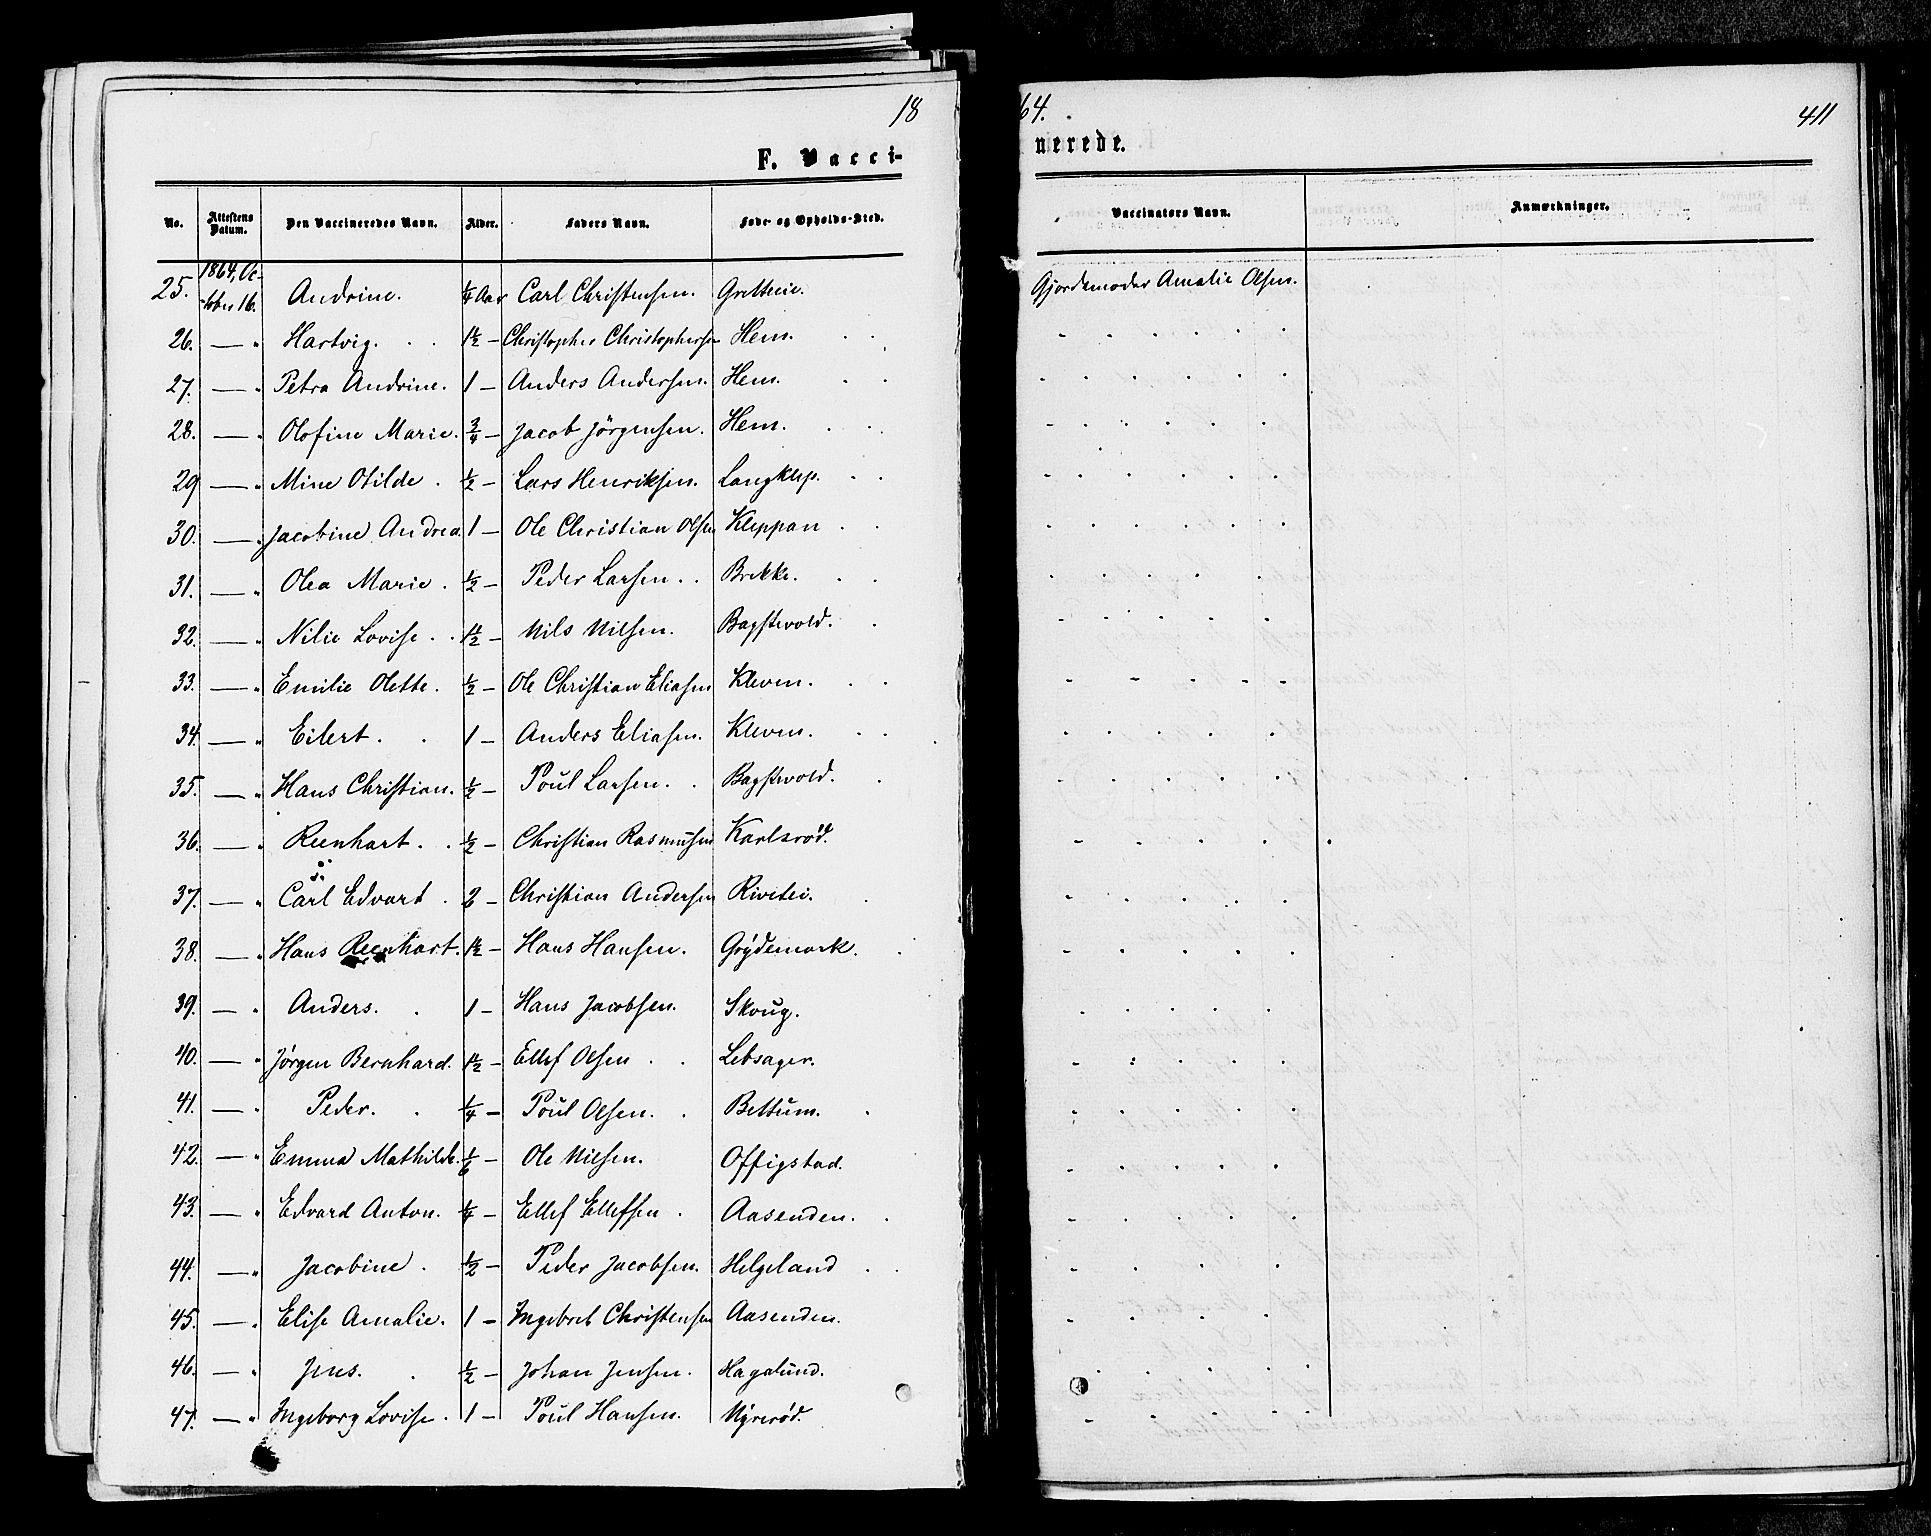 18
F. Vacci-
No. Attestens Datum. Den Vaccineredes Navn. Alder. Faders Navn. Føde- og Opholds-Sted.
25. 1864, Oc-tober 16. Andrine. ¼ Aar Carl Christensen. Gretteie.
26. — " Hartvig. 1½ – Christopher Christophersen Hem.
27. — " Petra Andrine. 1 – Anders Andersen. Hem.
28. — " Olofine Marie. ¾ – Jacob Jörgensen. Hem.
29 — " Mine Otilde. ½ – Lars Henriksen. Langklep.
30. — " Jacobine Andrea. 1 – Ole Christian Olsen Kleppan
31. — " Olea Marie. ½ – Peder Larsen. Brekke.
32. — " Nilie Lovise. 1½ – Nils Nilsen. Bagstevold.
33. — " Emilie Olette. ½ – Ole Christian Eliasen Kleven.
34 — " Eilert. 1 – Anders Eliasen. Kleven.
35. — " Hans Christian. ½ – Poul Larsen. Bagstevold.
36. — " Reenhart. ½ – Christian Rasmusen Karlsrød.
37. — " Carl Edvart. 2 – Christian Andersen Rivetei.
38. — " Hans Reenhart. 1½ – Hans Hansen. Grydemark.
39. — " Anders. 1 – Hans Jacobsen. Skoug.
40. — " Jørgen Bernhard. 1½ – Ellef Olsen Lebsager.
41. — " Peder. ¼ – Poul Olsen. Bettum.
42. — " Emma Mathilde. 1/6 – Ole Nilsen. Offigstad.
43. — " Edvard Anton. ¼ – Ellef Ellefsen Aasenden.
44. — " Jacobine ½ – Peder Jacobsen. Helgeland
45. — " Elise Amalie. 1 – Ingebret Christensen Aasenden.
46. — " Jens. ½ – Johan Jensen. Hagalund.
47. — " Ingeborg Lovise. 1 – Poul Hansen. Nyrerød.
64.
411
nerede.
Vaccinators Navn. Anmærkninger.
Gjordemoder Amalie Olsen.